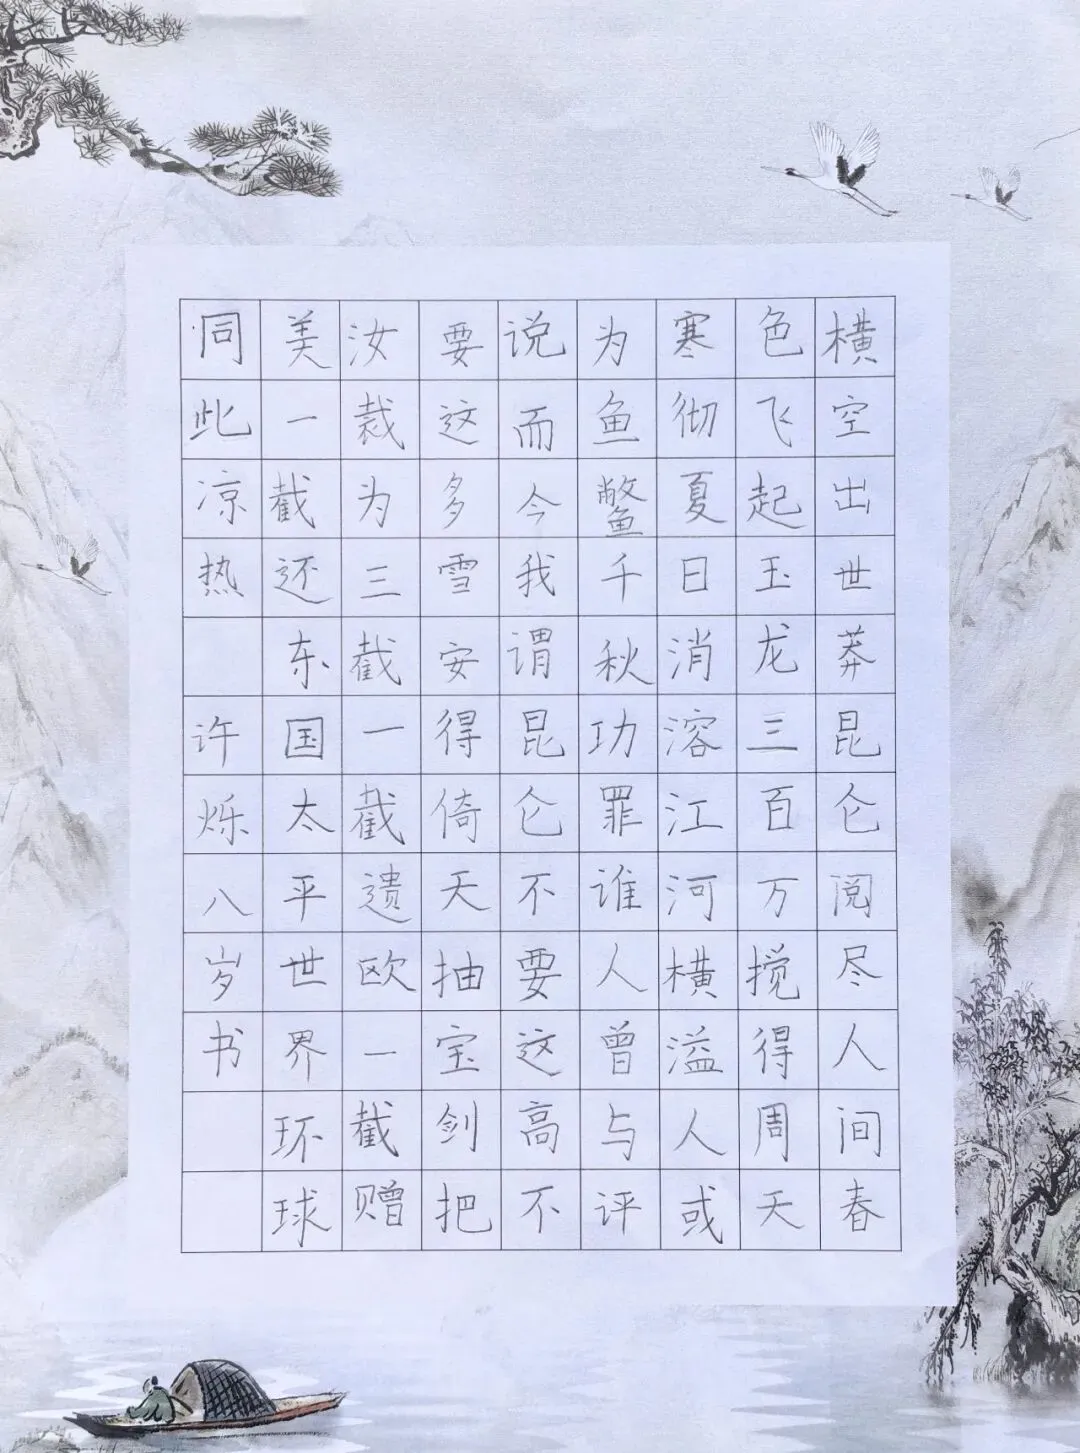 横空出世莽昆仑阅尽人间春
色飞起玉龙三百万搅得周天
寒彻夏日消溶江河横溢人或
为鱼鳖千秋功罪谁人曾与评
说而今我谓昆仑不要这高不
要这多雪安得倚天抽宝剑把
汝裁为三截一截遗欧一截赠
美一截还东国太平世界环球
同此凉热 许烁八岁书